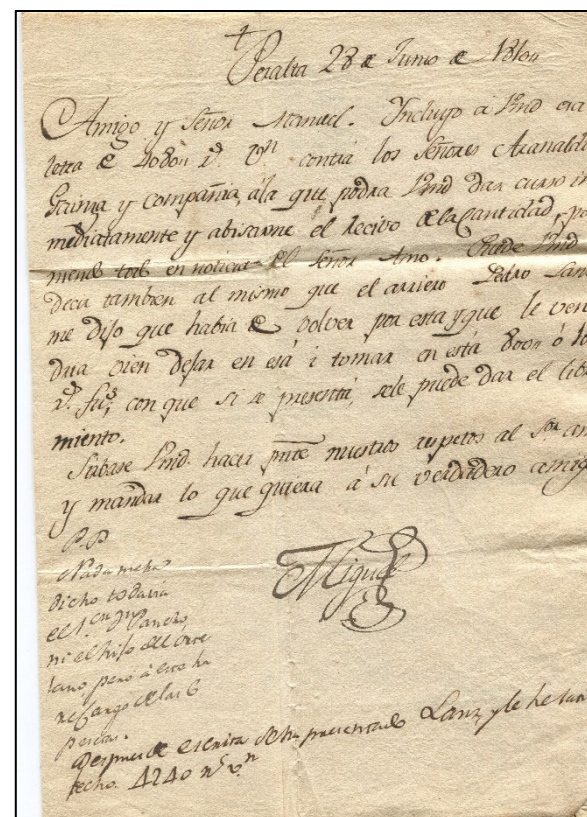 Peralta 28 de Junio de 1804
Amigo y Señor Manuel. Incluyo á Vmd esa
letra de r.s v.n contra los Señores
Guima y compañia, ála que podra Vmd dar curso in
mediatamente y abisarme el recivo dela cantidad, po
niendo todo en noticia el Señor Amo. Puede Vmd
decir tambien al mismo que el arriero Pedro Lan
me dijo que habia de volver por esta y que le ven
dria vien dejar en esa i tomar en está 800 ó
r.s f.s con que si se presenta, sele puede dar el libra
miento.
Sirbase Vmd. hacer pnte nuestros respetos al S.or am
y mandar lo que quiera á su verdadero amigo
Miguel
P.D
Nada me ha
dicho todavia
el
ni el hijo del
pero á este ha
delas 6
Despues de escrita se ha presentado Lanz, y le he
fecho. 4240 r.s v.n